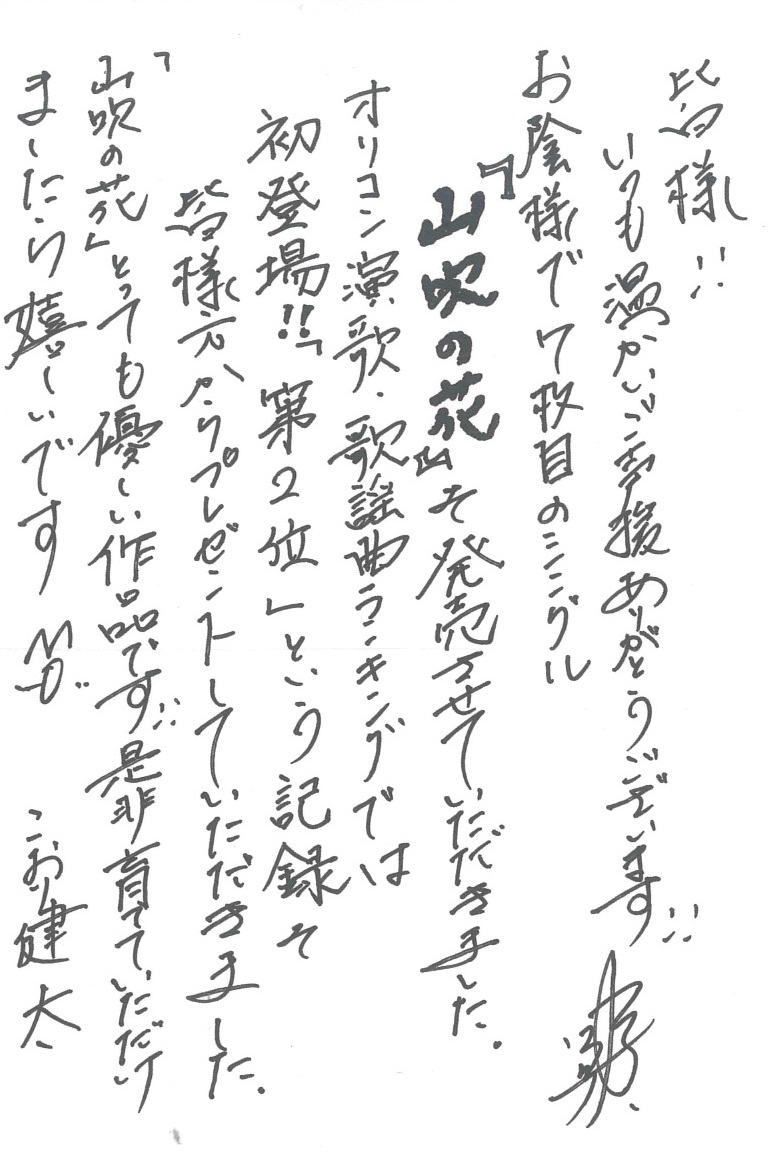 皆様!!
いつも温かいご声援ありがとうございます!!
お陰様で7枚目のシングル
『山吹の花』を発売させていただきました.
オリコン演歌・歌謡曲ランキングでは
初登場!!「第2位」という記録を
皆様方からプレゼントしていただきました.
「山吹の花」とっても優しい作品です!!是非育てていただけ
ましたら嬉しいです
こおり健太